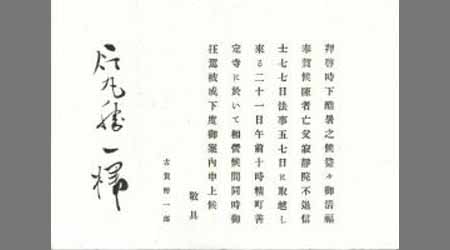 拝啓時下酷暑之候愈々御清福
奉賀候陳者亡父寂静院不退信
士七七日法事五七日に取越し
来る二十一日午前十時町善
定寺に於いて相営候間同時御
枉駕被成下度御案内申上候
敬具
古賀一郎